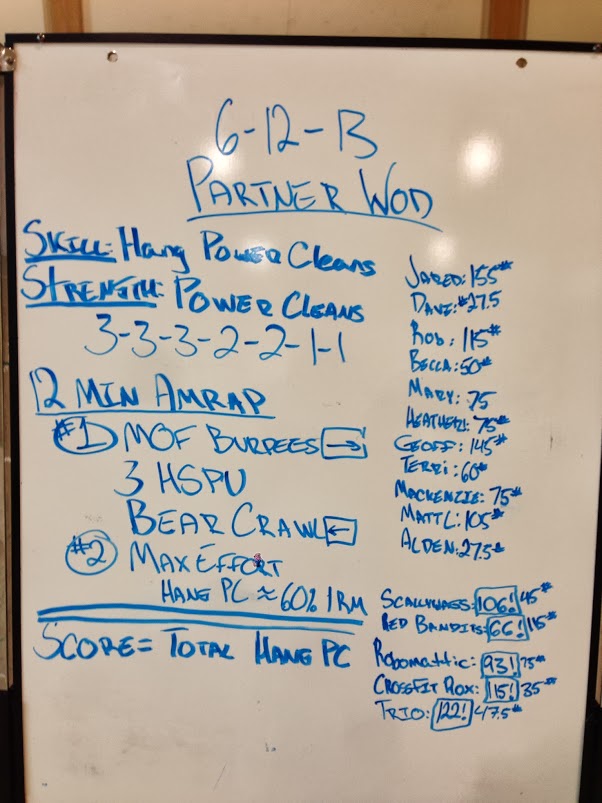 6-12-13
PARTNER WOD
SKILL: Hang Power Cleans
STRENGTH: POWER CLEANS
3-3-3-2-2-1-1
12 MIN AMRAP
#1) MOF BURPEES →
3 HSPU
BEAR CRAWL ←
#2 MAX EFFORT
HANG PC ≈ 60% 1RM
SCORE = TOTAL HANG PC
JARED: 155#
DAVE: #27.5
ROB: 115#
BECCA: 50#
MARY: 75
HEATHER: 75#
GEOFF: 145#
TERRI: 60#
MACKENZIE: 75#
MATT L: 105#
ALDEN: 27.5#
SCALLYWAGS: 106! 45#
RED BANDITS: 66! 115#
ROBOMATTIC: 93! 75#
CROSSFIT ROX: 115! 35#
TRIO: 122! 47.5#